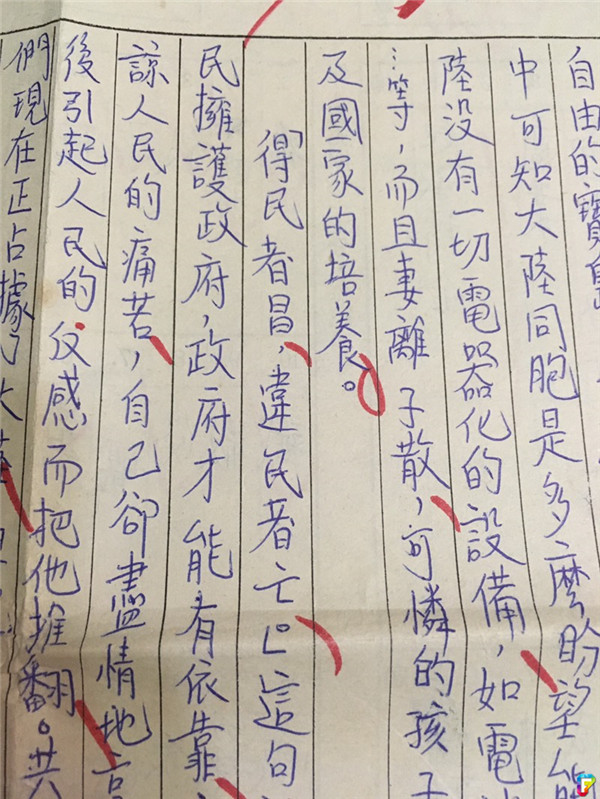 自由的寶島
中可知大陸同胞是多麼盼望能
陸没有一切電器化的設備，如電
…等，而且妻離子散，可憐的孩子
及國家的培養。
「得民者昌，違民者亡」。這句
民擁護政府，政府才能有依靠
諒人民的痛苦，自己卻盡情地
後引起人民的反感而把他推翻。共
們現在正占據了大